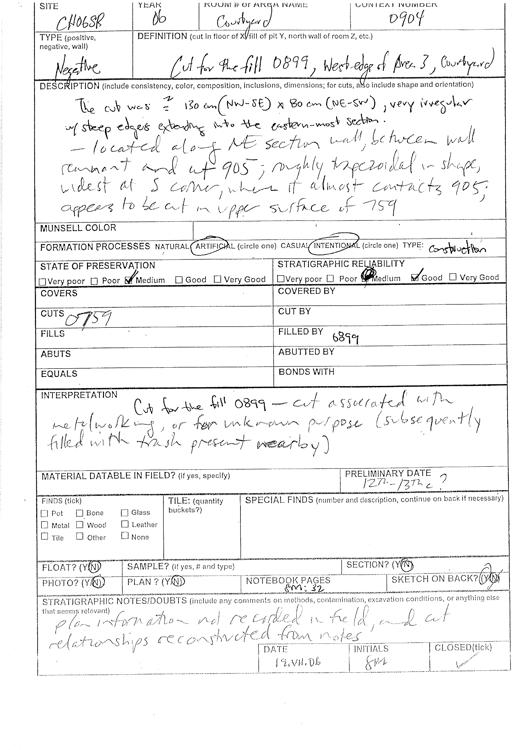 SITE YEAR ROOM # OF AREA NAME CONTEXT NUMBER
CH06SR 06 Courtyard 0904
TYPE (positive, negative, wall) DEFINITION (cut in floor of X/fill of pit Y, north wall of room Z, etc.)
Negative Cut for the fill 0899, West edge of Area 3, Courtyard
DESCRIPTION (include consistency, color, composition, inclusions, dimensions; for cuts, also include shape and orientation)
The cut was ≈ 130 cm (NW-SE) x 80 cm (NE-SW), very irregular
w/ steep edges extending into the eastern-most section.
- located along NE section wall, between wall
remnant and cut 905; roughly trapezoidal in shape,
widest at S corner, where it almost contacts 905;
appears to be cut in upper surface of 759
MUNSELL COLOR
FORMATION PROCESSES NATURAL ARTIFICIAL (circle one) CASUAL INTENTIONAL (circle one) TYPE: construction
STATE OF PRESERVATION STRATIGRAPHIC RELIABILITY
Very poor Poor Medium Good Very Good Very poor Poor Medium Good Very Good
COVERS COVERED BY
CUTS 0759 CUT BY
FILLS FILLED BY 6899
ABUTS ABUTTED BY
EQUALS BONDS WITH
INTERPRETATION
Cut for the fill 0899 - cut associated with
metalworking, or for unknown purpose (subsequently
filled with trash present nearby)
MATERIAL DATABLE IN FIELD? (if yes, specify) PRELIMINARY DATE
12th-13th c?
FINDS (tick) TILE: (quantity buckets?) SPECIAL FINDS (number and description, continue on back if necessary)
Pot Bone Glass
Metal Wood Leather
Tile Other None
FLOAT? (Y/N) SAMPLE? (if yes, # and type) SECTION? (Y/N)
PHOTO? (Y/N) PLAN? (Y/N) NOTEBOOK PAGES 8M: 32 SKETCH ON BACK? (Y/N)
STRATIGRAPHIC NOTES/DOUBTS (include any comments on methods, contamination, excavation conditions, or anything else
that seems relevant)
plan information not recorded in field, and cut
relationships reconstructed from notes
DATE INITIALS CLOSED(tick)
19.VII.06 8M